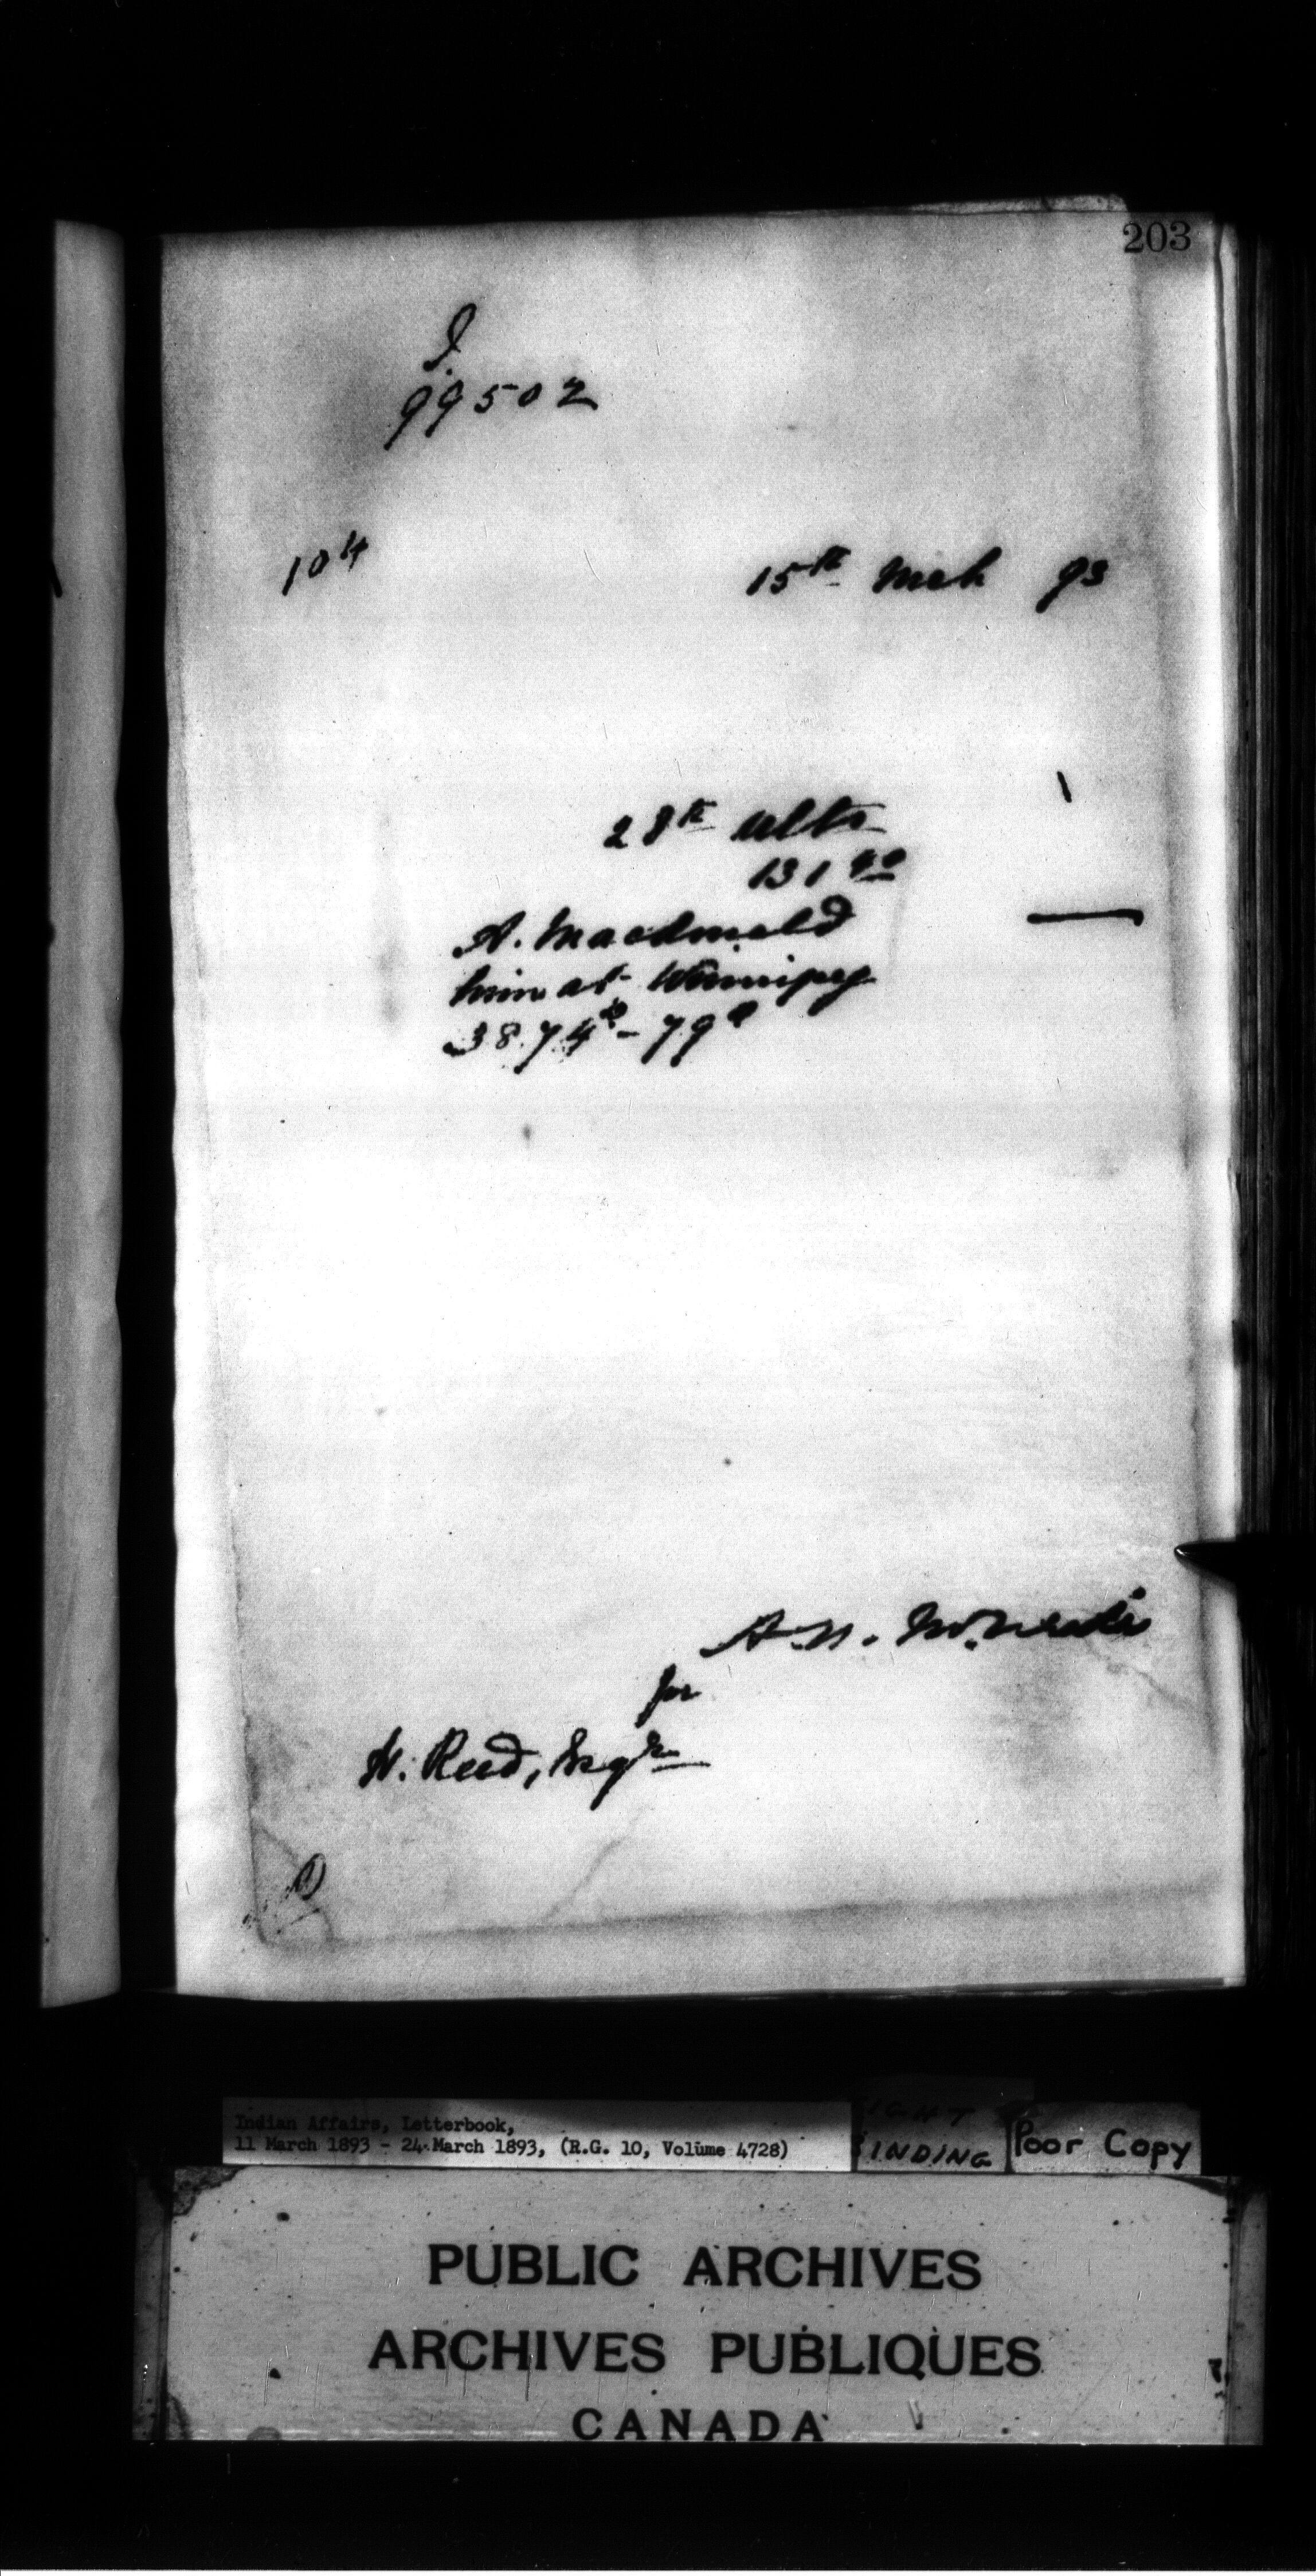 203
I.
99502
104
15th Mch 93
28th ulto
131 40
A. Macdonald
him at Winnipeg
38.74 - 79
A. N. McNeill
for
H. Reed, Esqr
Indian Affairs, Letterbook,
11 March 1893 - 24 March 1893, (R.G. 10, Volume 4728)
INDING
Poor Copy
PUBLIC ARCHIVES
ARCHIVES PUBLIQUES
CANADA